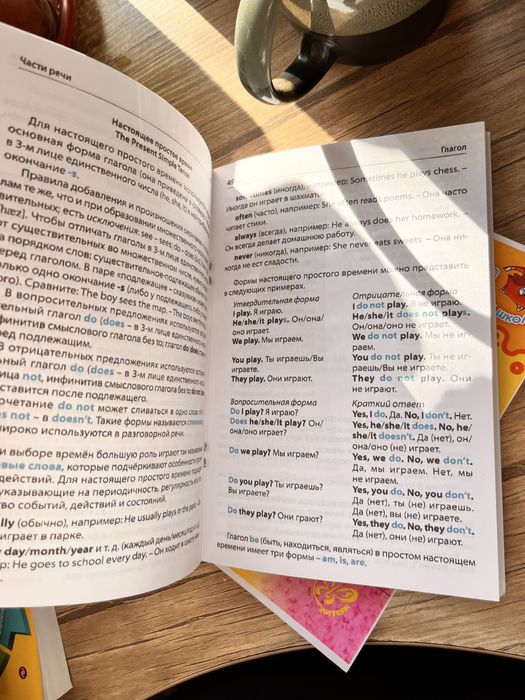 Части речи
Настоящее простое время
The Present Simple Tense
Для настоящего простого времени
основная форма глагола (она приведена в
в 3-м лице единственного числа (he, she, it)
окончание -s.
Правила добавления и произношения окончания
лам те же, что и при образовании множественного
вительных; есть исключения: see – sees; do – does
[hæz]. Чтобы отличать глаголы в 3-м лице единст
от существительных во множественном числе,
за порядком слов: существительное-подлежащее
перед глаголом. В паре «подлежащее – сказуемое»
только одно окончание -s (либо у подлежащего, либо
). Сравните: The boy sees the map. – The boys
В вопросительных предложениях используют
тельный глагол do (does – в 3-м лице единственного
инфинитив смыслового глагола без to; глагол do (does)
перед подлежащим.
В отрицательных предложениях используются
льный глагол do (does – в 3-м лице единственного чис
ица not, инфинитив смыслового глагола без to; do и
ставится после подлежащего.
очетание do not может сливаться в одно слово
es not – в doesn't. Такие формы называются
широко используются в разговорной речи.
и выборе времён большую роль играют так называ
евые слова, которые подчёркивают особенности
действий. Для настоящего простого времени
указывающие на периодичность, регулярность
во событий, действий и состояний.
lly (обычно), например: He usually plays in the park.
играет в парке.
y day/month/year и т. д. (каждый день/месяц/год
р: He goes to school every day. – Он ходит в школу
Глагол
49
sometimes (иногда), например: Sometimes he plays chess. –
Иногда он играет в шахматы.
often (часто), например: She often reads poems. – Она часто
читает стихи.
always (всегда), например: He always does her homework. –
Он всегда делает домашнюю работу.
never (никогда), например: She never eats sweets. – Она ни-
когда не ест сладости.
Формы настоящего простого времени можно представить
в следующих примерах.
Утвердительная форма
I play. Я играю.
He/she/it plays. Он/она/
оно играет.
We play. Мы играем.
You play. Ты играешь/Вы
играете.
They play. Они играют.
Отрицательная форма
I do not play. Я не играю.
He/she/it does not plays.
Он/она/оно не играет.
We do not play. Мы не иг-
раем.
You do not play. Ты не иг-
раешь/Вы не играете.
They do not play. Они
не играют.
Вопросительная форма
Do I play? Я играю?
Does he/she/it play? Он/
она/оно играет?
Do we play? Мы играем?
Do you play? Ты играешь?
Вы играете?
Do they play? Они грают?
Краткий ответ
Yes, I do. Да. No, I don't. Нет.
Yes, he/she/it does. No, he/
she/it doesn't. Да (нет), он/
она/оно (не) играет.
Yes, we do. No, we don't.
Да, мы играем. Нет, мы
не играем.
Yes, you do. No, you don't.
Да (нет), ты (не) играешь.
Да (нет), вы (не) играете.
Yes, they do. No, they don't.
Да (нет), они (не) играют.
Глагол be (быть, находиться, являться) в простом настоящем
времени имеет три формы – am, is, are.
ЛИТЕРА